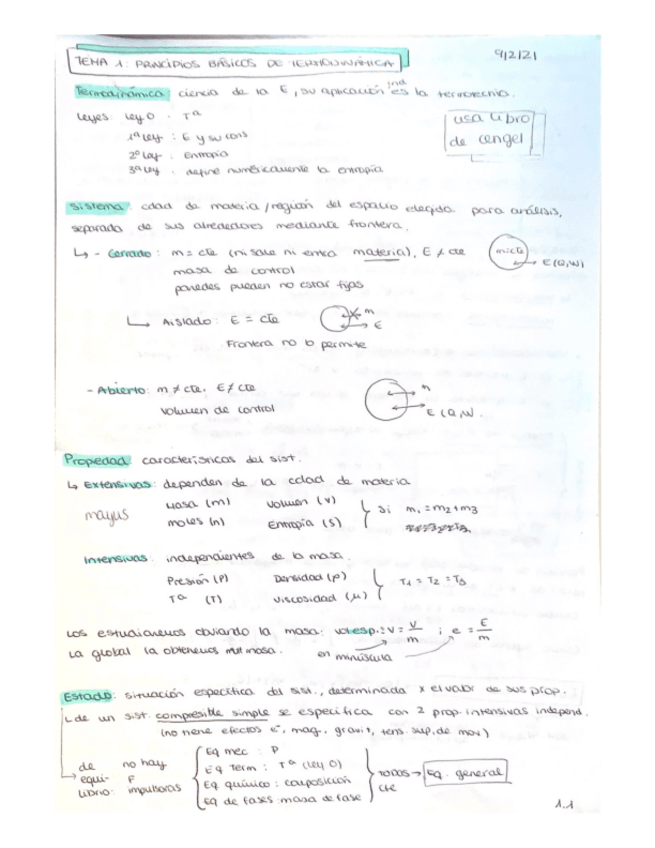 TEMA 1: PRINCIPIOS BÁSICOS DE TERMODINÁMICA
9/2/21
Termodinámica ciencia de la E, su aplicación ind es la termotecnia.
Leyes ley 0 . Tª
1ª ley : E y su cons
2ª ley . Entropía
3ª ley . define numéricamente la entropía
usa libro
de cengel
Sistema cdad de materia/región del espacio elegida para análisis,
separado de sus alrededores mediante frontera.
↳ - Cerrado: m = cte (ni sale ni entra materia), E ≠ cte
masa de control
paredes pueden no estar fijas
m=cte
E(Q,W)
↳ Aislado: E = cte
Frontera no lo permite
m
E
- Abierto: m ≠ cte. E ≠ cte
Volumen de control
m
E(Q,W.
Propiedad características del sist.
↳ Extensivas: dependen de la cdad de materia
mayus
Masa (m) Volumen (V)
moles (n) Entropía (S)
Si m₁=m₂+m₃
Intensivas: independientes de la masa.
Presión (P) Densidad (ρ)
Tª (T) Viscosidad (μ)
T₁ = T₂ = T₃
Los estudiaremos obviando la masa: vol.esp.: v = V/m ; e = E/m
La global la obtenemos mult masa.
en minúscula
Estado: situación específica del sist., determinada x el valor de sus prop.
↳ de un sist. compresible simple se especifica con 2 prop. intensivas independ.
(no tiene efectos e⁻, mag., gravit, tens. sup, de mov)
de equilibrio: no hay F impulsoras
Eq mec : P
Eq Term : Tª (Ley 0)
Eq químico : composición
Eq de fases : masa de fase
TODOS cte → Eq. general
1.1